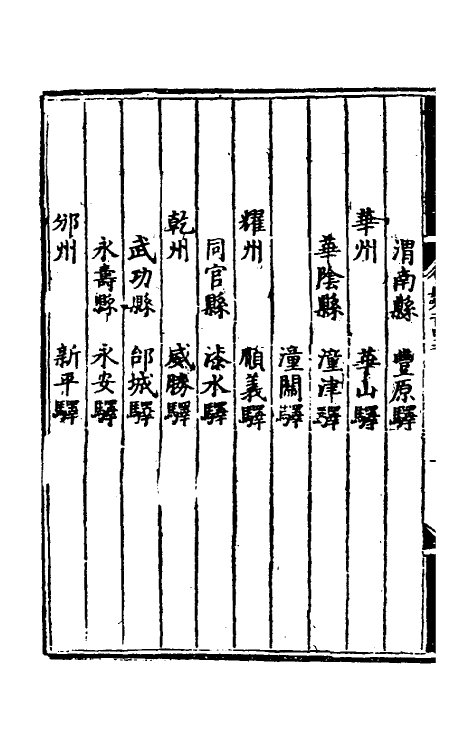 渭南縣　豐原驛
華州　華山驛
華陰縣　潼津驛
潼關驛
耀州　順義驛
同官縣　漆水驛
乾州　威勝驛
武功縣　邰城驛
永壽縣　永安驛
邠州　新平驛